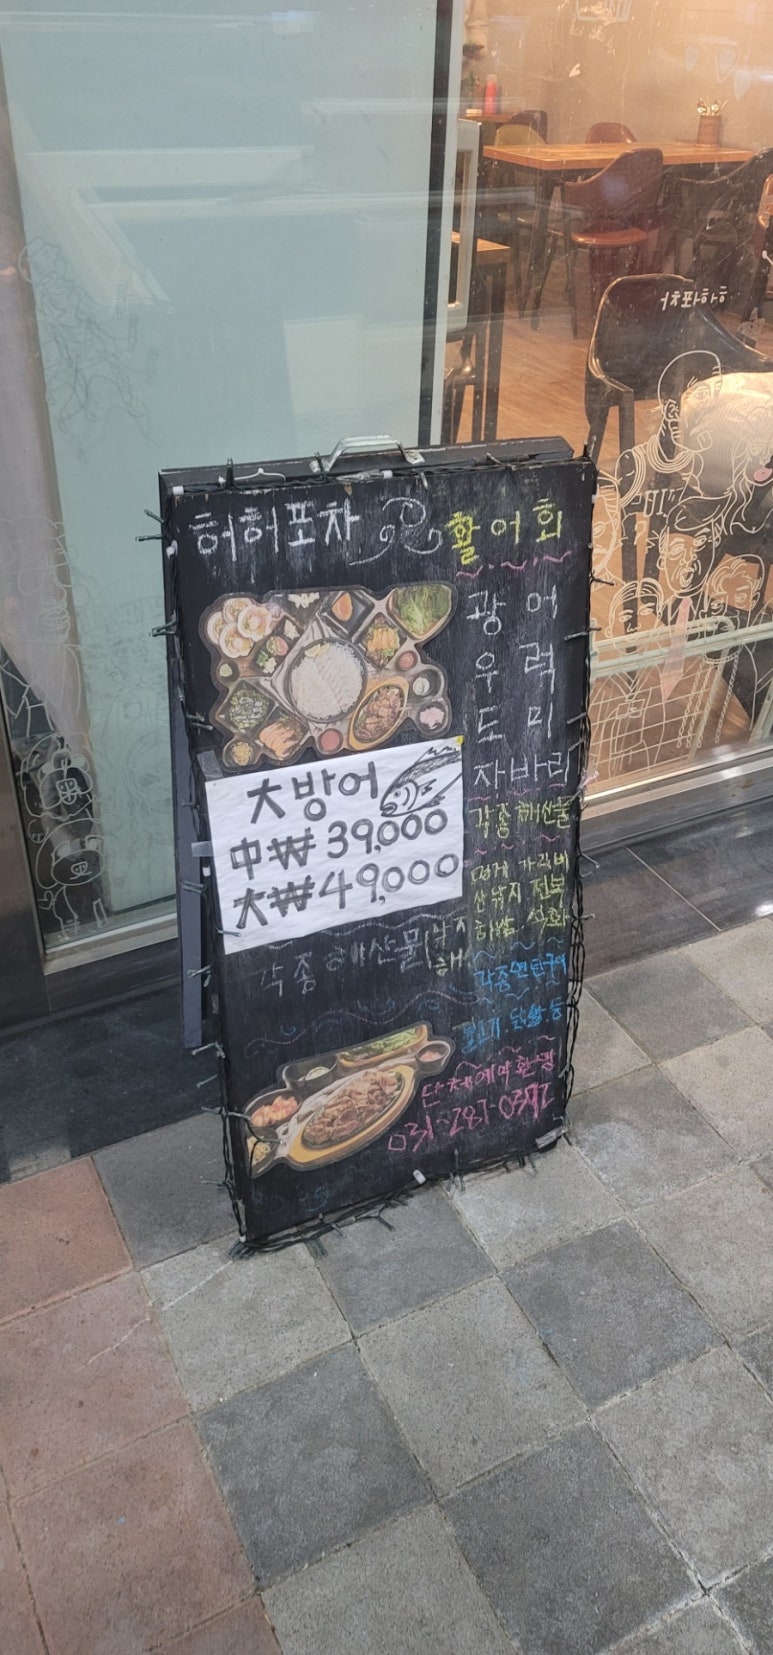 허허포차
활어회
광어
우럭
도미
자바리
大방어
中₩39,000
大₩49,000
각종 해산물
멍게 가리비
산낙지 전복
석화
각종 해산물(낙지
해
각종 연탄구이
불고기, 닭발 등
단체예약환영
031-287-0372
허허포차